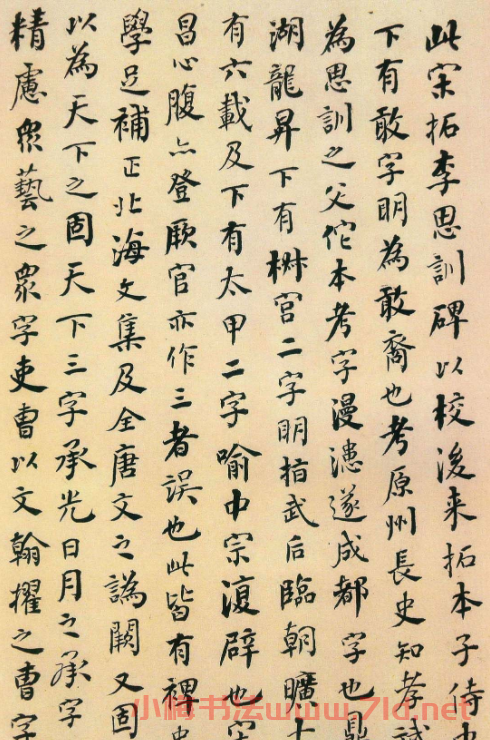 此宋拓李思訓碑以校後来拓本子侍中
下有敢字明為敢裔也考原州長史知孝斌
為思訓之父佗本考字漫漶遂成都字也鼎
湖龍昇下有樹宮二字明指武后臨朝曠十
有六載及下有太甲二字喻中宗復辟也
昌心腹亦登厥官亦作三者誤也此皆有裨史
學足補正北海文集及全唐文之譌闕又固
以為天下之固天下三字承光日月之承字
精慮眾藝之眾字吏曹以文翰擢之曹字
小楷书法www.7ld.net